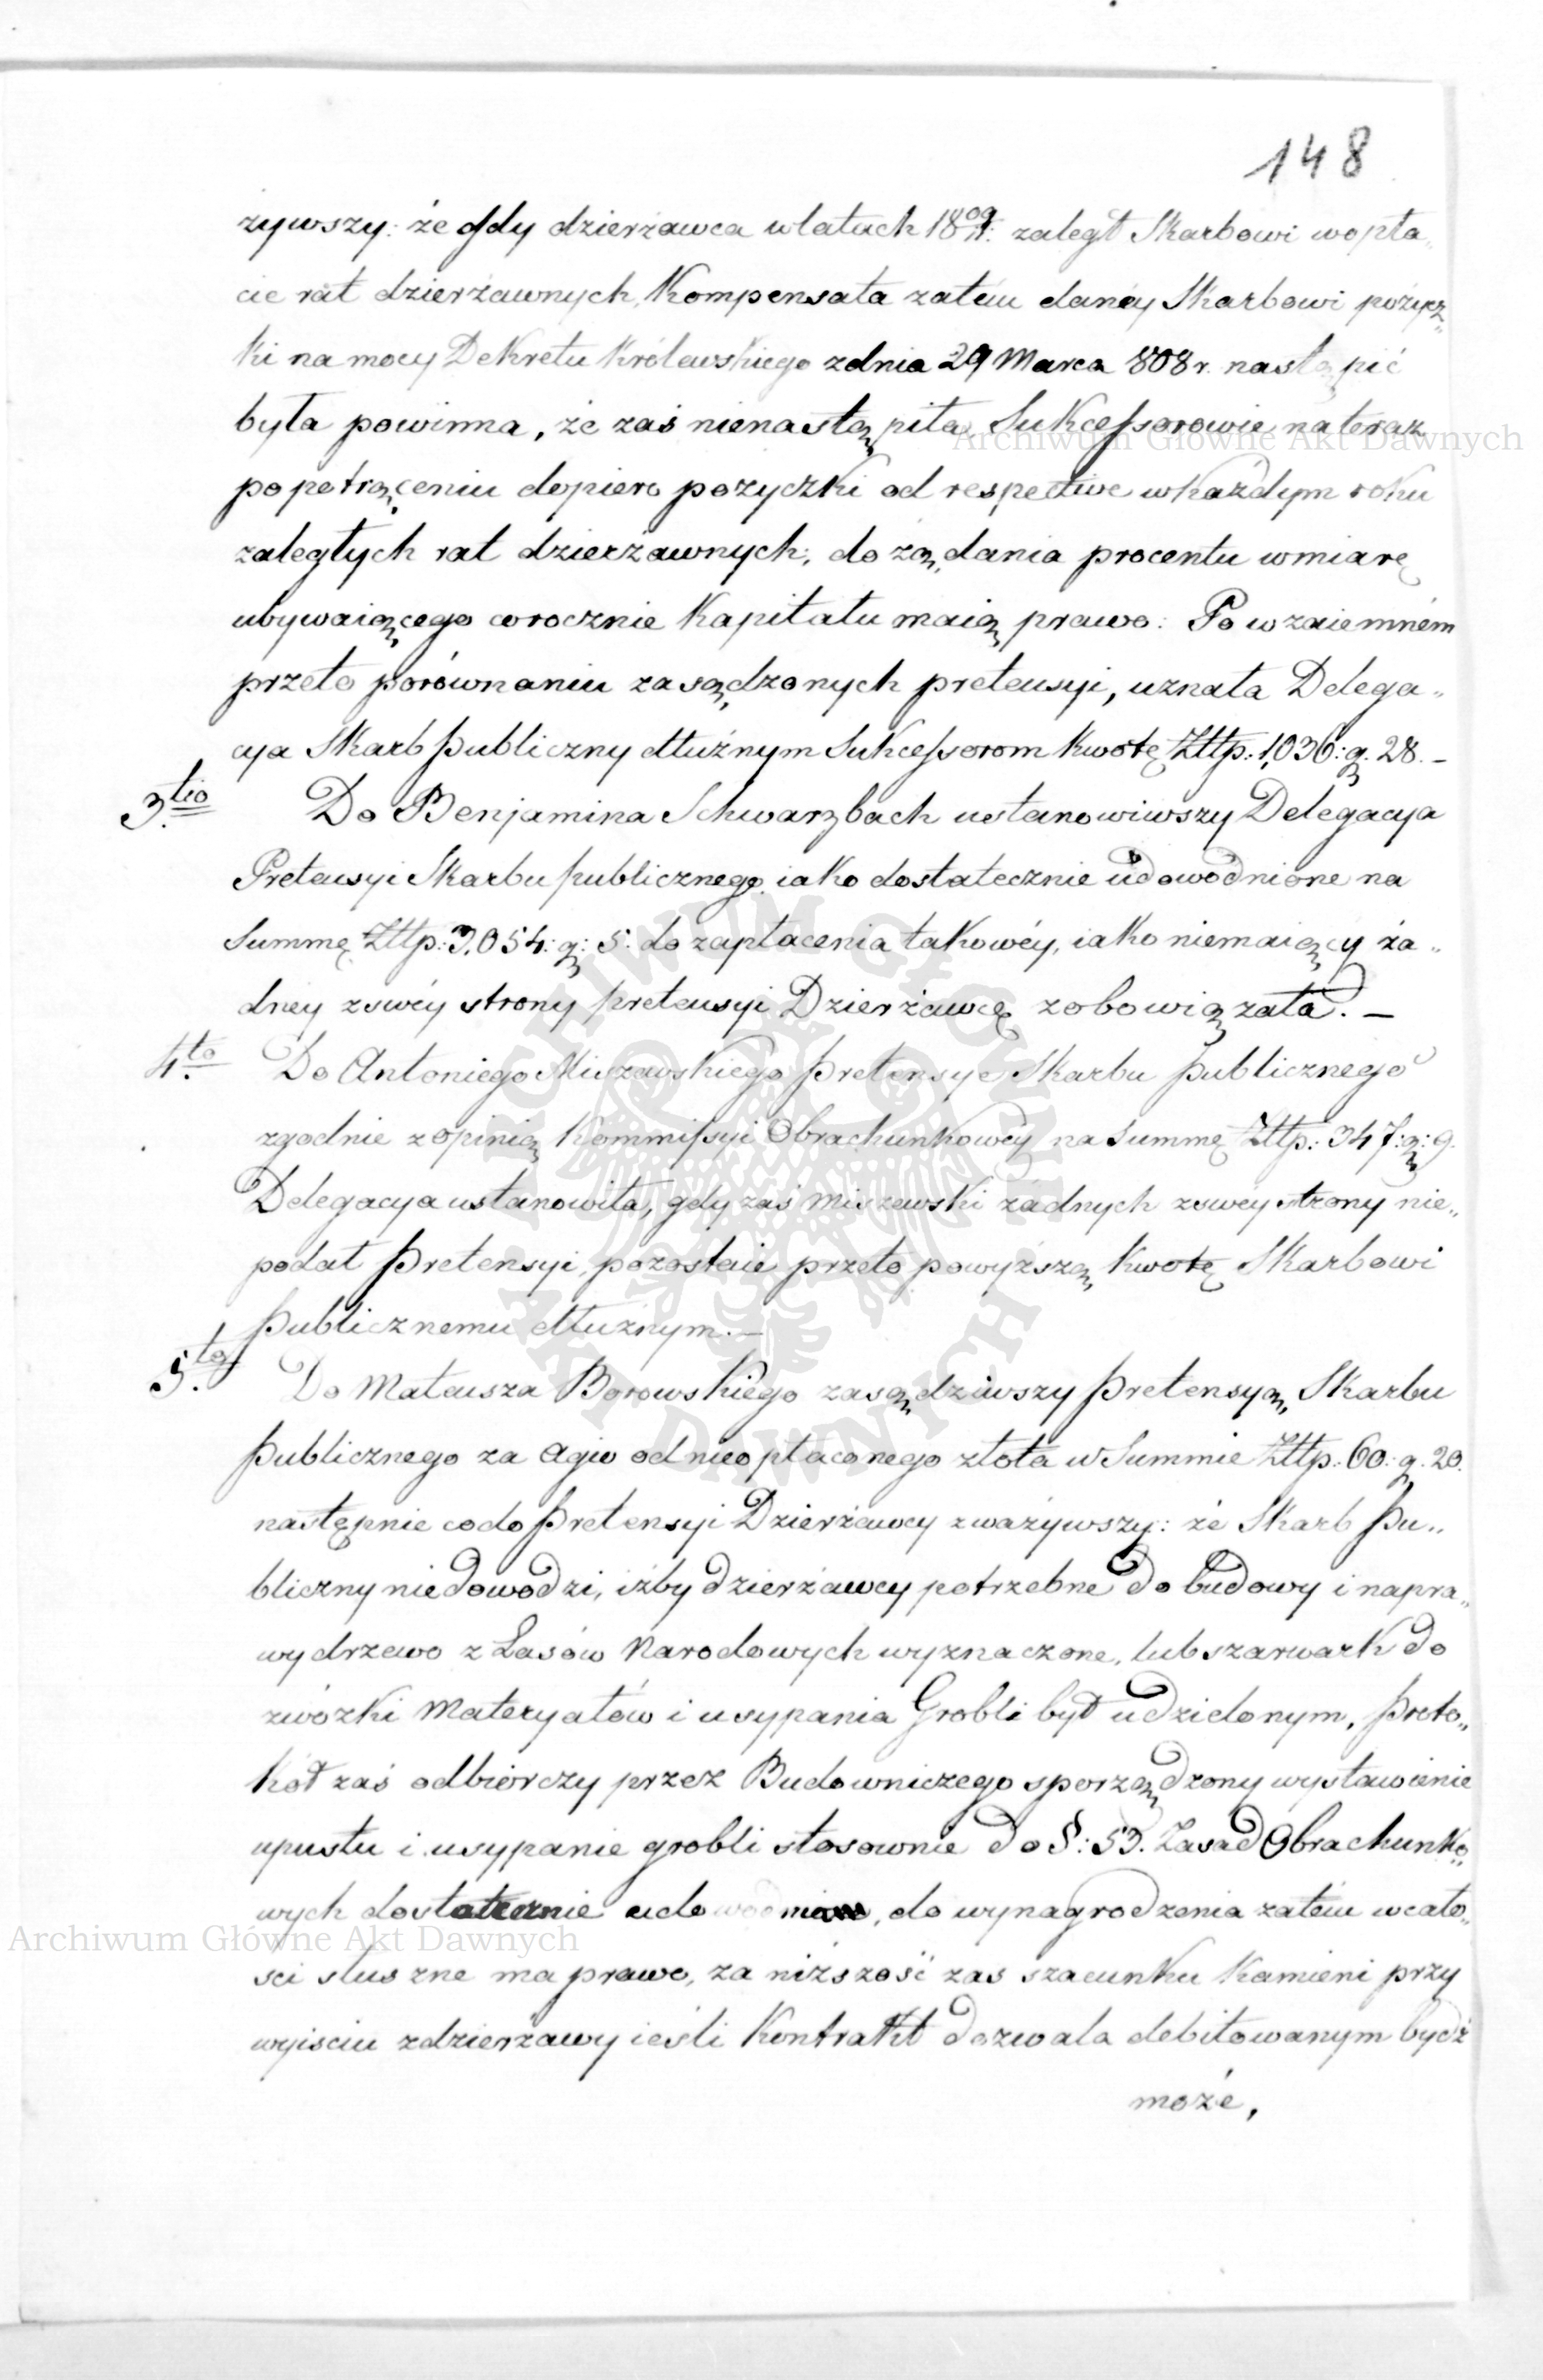 148
żywszy: że gdy dzierżawca w latach 18 09/11: zaległ Skarbowi w opła„
cie rat dzierżawnych, Kompensata zatém danéy Skarbowi pożycz„
ki na mocy Dekretu Królewskiego z dnia 29 Marca 808 r. nastąpić
była powinna, że zaś nienastąpiła, Sukcessorowie na teraz
po potrąceniu dopiero pożyczki od respective w każdym roku
zaległych rat dzierżawnych, do żądania procentu w miarę
ubywaiącego corocznie Kapitału maią prawo: Po wzaiemném
przeto porównaniu zasądzonych pretensyi, uznała Delega„
cya Skarb publiczny dłużnym Sukcessorom kwotę Złłp: 1,036: g. 28. –
3.tio Do Benjamina Schwarzbach ustanowiwszy Delegacya
Pretensyi Skarbu publicznego iako dostatecznie udowodnione na
Summę Złłp: 3,054: g: 5. do zapłacenia takowéy, iako niemaiący ża„
dney z swéy strony pretensyi Dzierżawcę zobowiązała. –
4.to Do Antoniego Miszewskiego pretensye Skarbu publicznego
zgodnie z opinią Kommissyi Obrachunkowéy na Summę Złłp: 347: g: 9.
Delegacya ustanowiła, gdy zaś Miszewski żadnych z swéy strony nie„
podał pretensyi, pozostaie przeto powyższą kwotę Skarbowi
publicznemu dłużnym. –
5.to Do Mateusza Borowskiego zasądziwszy pretensyą Skarbu
publicznego za agio od nieopłaconego złota w Summie Złłp: 60: g. 20.
następnie co do pretensyi Dzierżawcy zważywszy: że Skarb Pu„
bliczny niedowodzi, iżby dzierżawcy potrzebne do budowy i napra„
wy drzewo z Lasów Narodowych wyznaczone, lub szarwark do
zwózki Materyałów i usypania Grobli był udzielonym, proto„
kół zaś odbiorczy przez Budowniczego sporządzony wystawienie
upustu i usypanie grobli stosownie do §: 53. Zasad Obrachunko„
wych dostatecznie udowodnione, do wynagrodzenia zatém w cało„
ści słuszne ma prawo, za niższość zaś szacunku Kamieni przy
wyiściu z dzierżawy ieśli Kontrakt dozwala debitowanym bydź
może,
Archiwum Główne Akt Dawnych
Archiwum Główne Akt Dawnych
ARCHIWUM GŁÓWNE AKT DAWNYCH